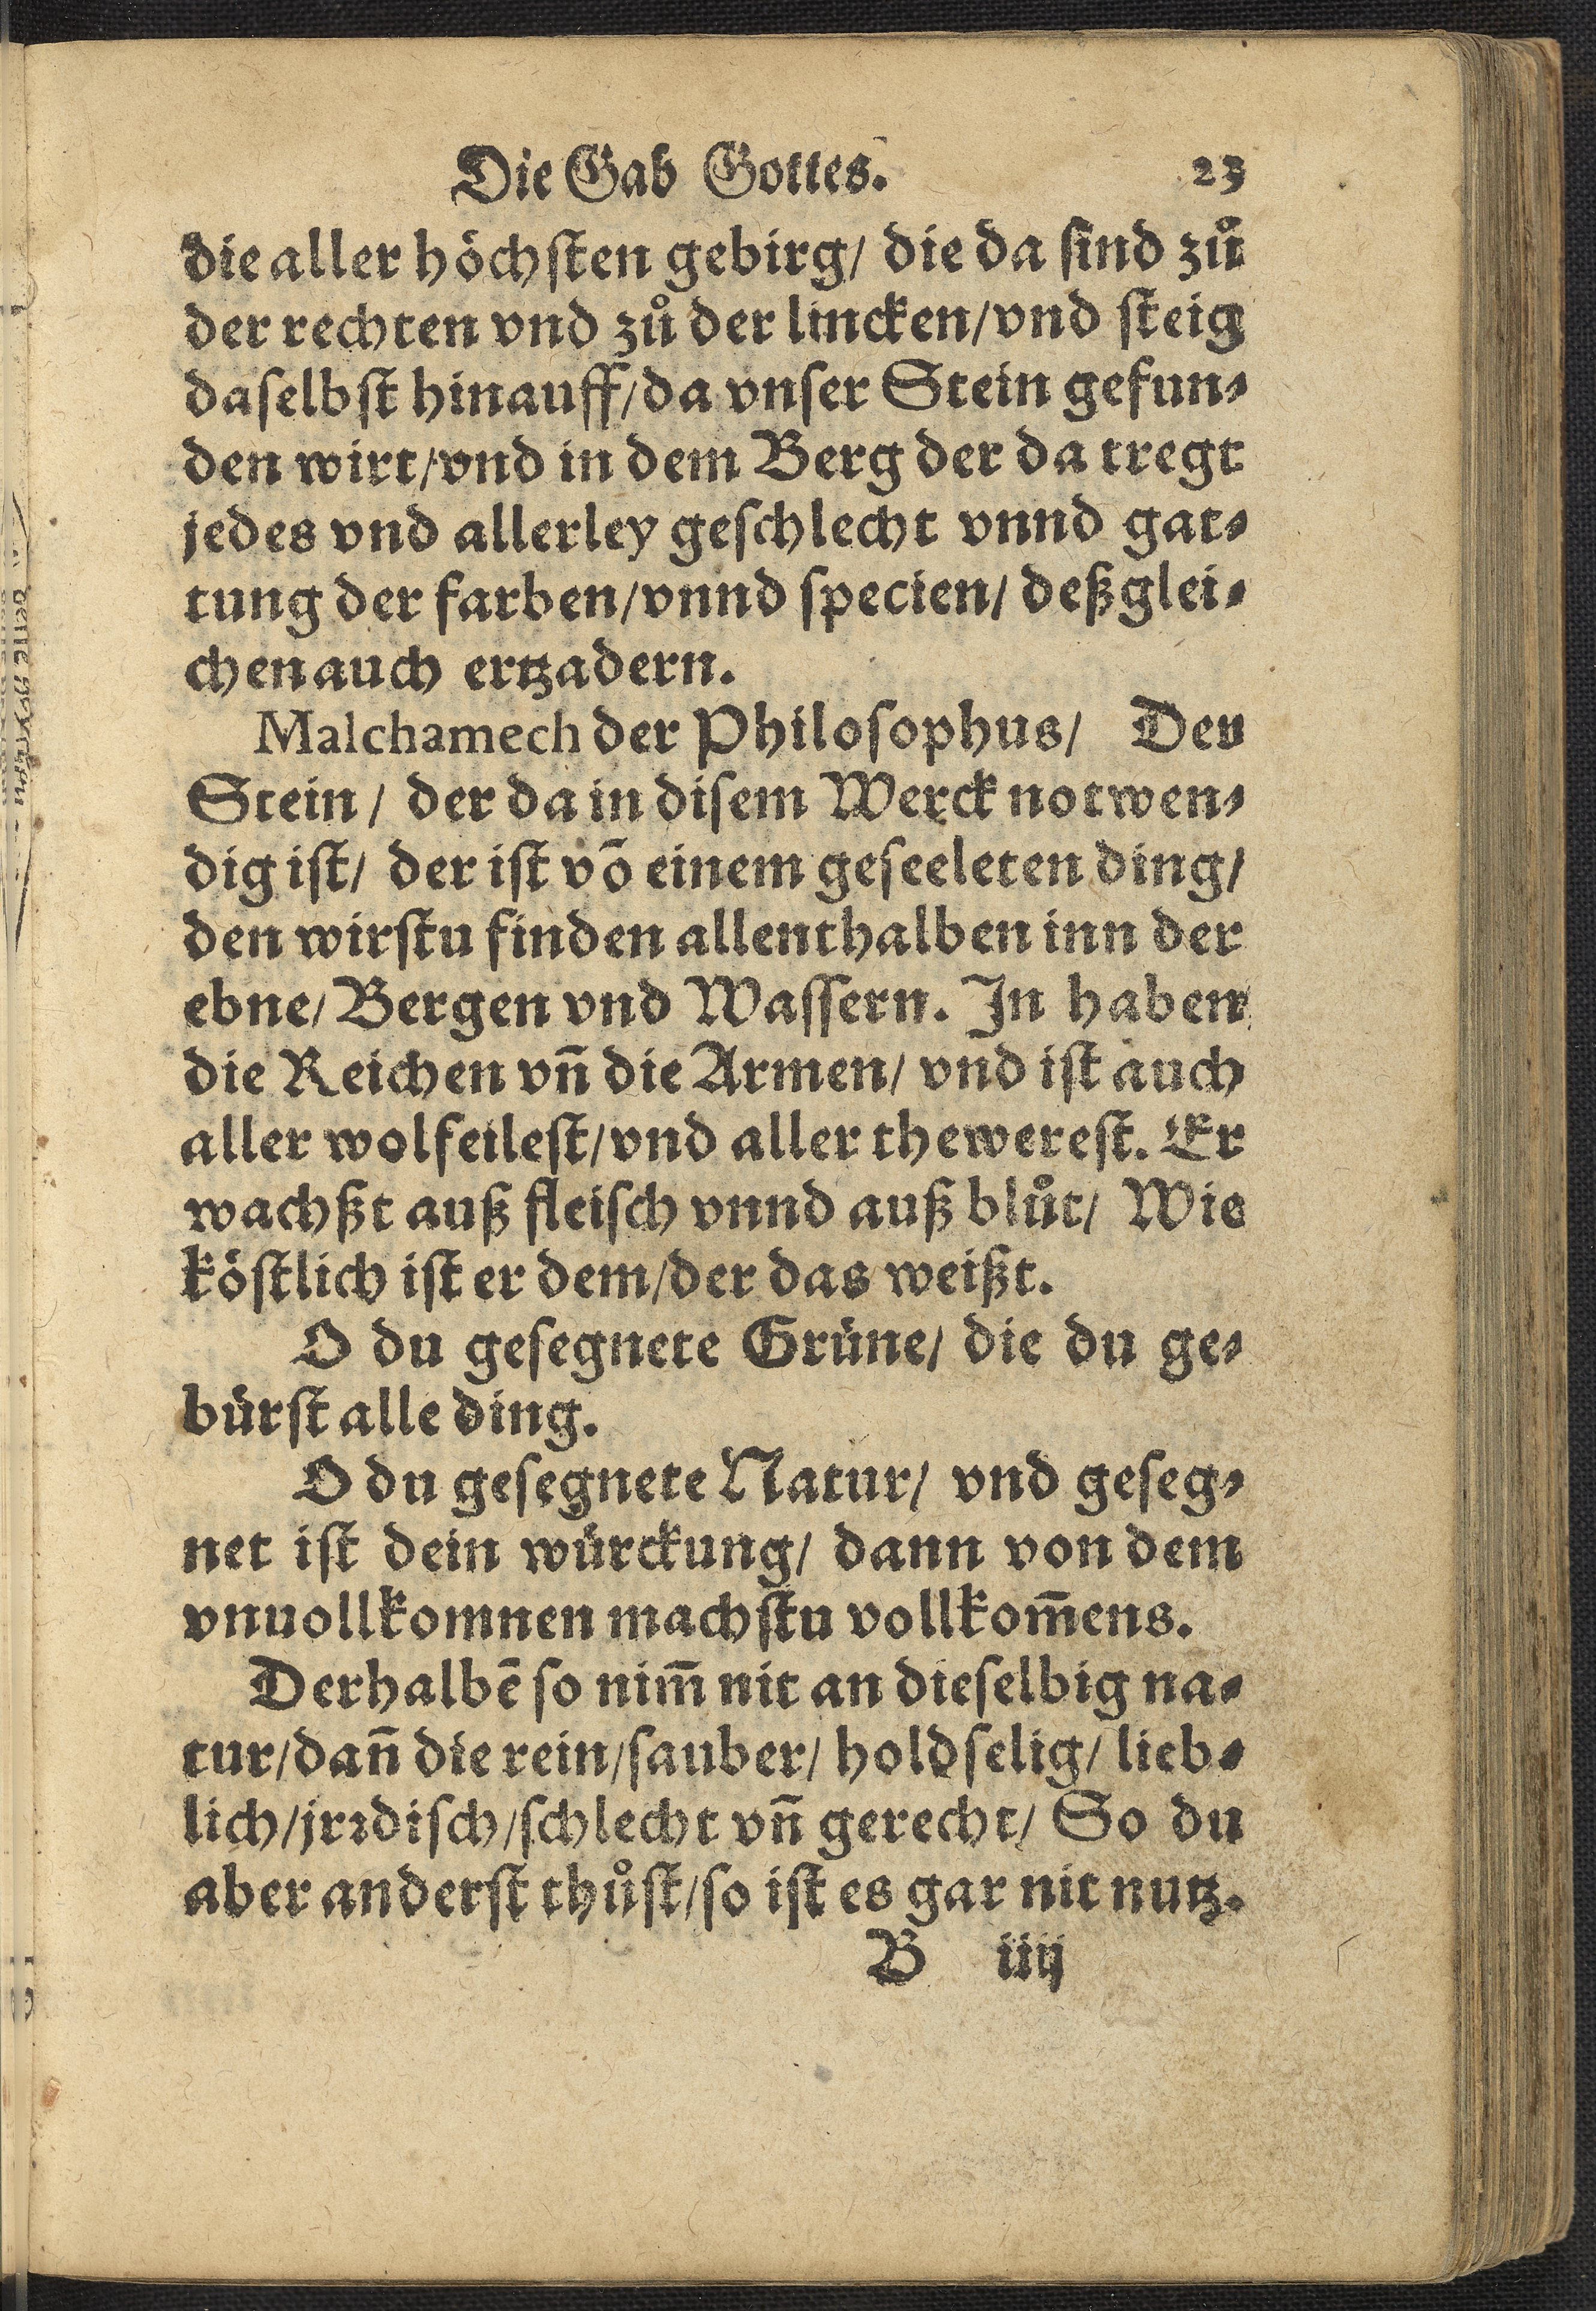 Die Gab Gottes. 23
die aller höchſten gebirg/ die da ſind zů
der rechten vnd zů der lincken/vnd ſteig
daſelbſt hinauff/da vnſer Stein gefun⸗
den wirt/vnd in dem Berg der da tregt
jedes vnd allerley geſchlecht vnnd gat⸗
tung der farben/vnnd ſpecien/ deßglei⸗
chen auch ertzadern.
Malchamech der Philoſophus/ Den
Stein/ der da in diſem Werck notwen⸗
dig iſt/ der iſt vō einem geſeeleten ding/
den wirſtu finden allenthalben inn der
ebne/ Bergen vnd Waſſern. In haben
die Reichen vn̄ die Armen/ vnd iſt auch
aller wolfeileſt/vnd aller thewereſt. Er
wachßt auß fleiſch vnnd auß blůt/ Wie
köſtlich iſt er dem/der das weißt.
O du geſegnete Grüne/ die du ge⸗
bürſt alle ding.
O du geſegnete Natur/ vnd geſeg⸗
net iſt dein würckung/ dann von dem
vnuollkomnen machſtu vollkom̄ens.
Derhalbē ſo nim̄ nit an dieſelbig na⸗
tur/dan̄ die rein/ſauber/ holdſelig/ lieb⸗
lich/jrꝛdiſch/ſchlecht vn̄ gerecht/ So du
aber anderſt thůſt/ſo iſt es gar nit nutz.
B iiij